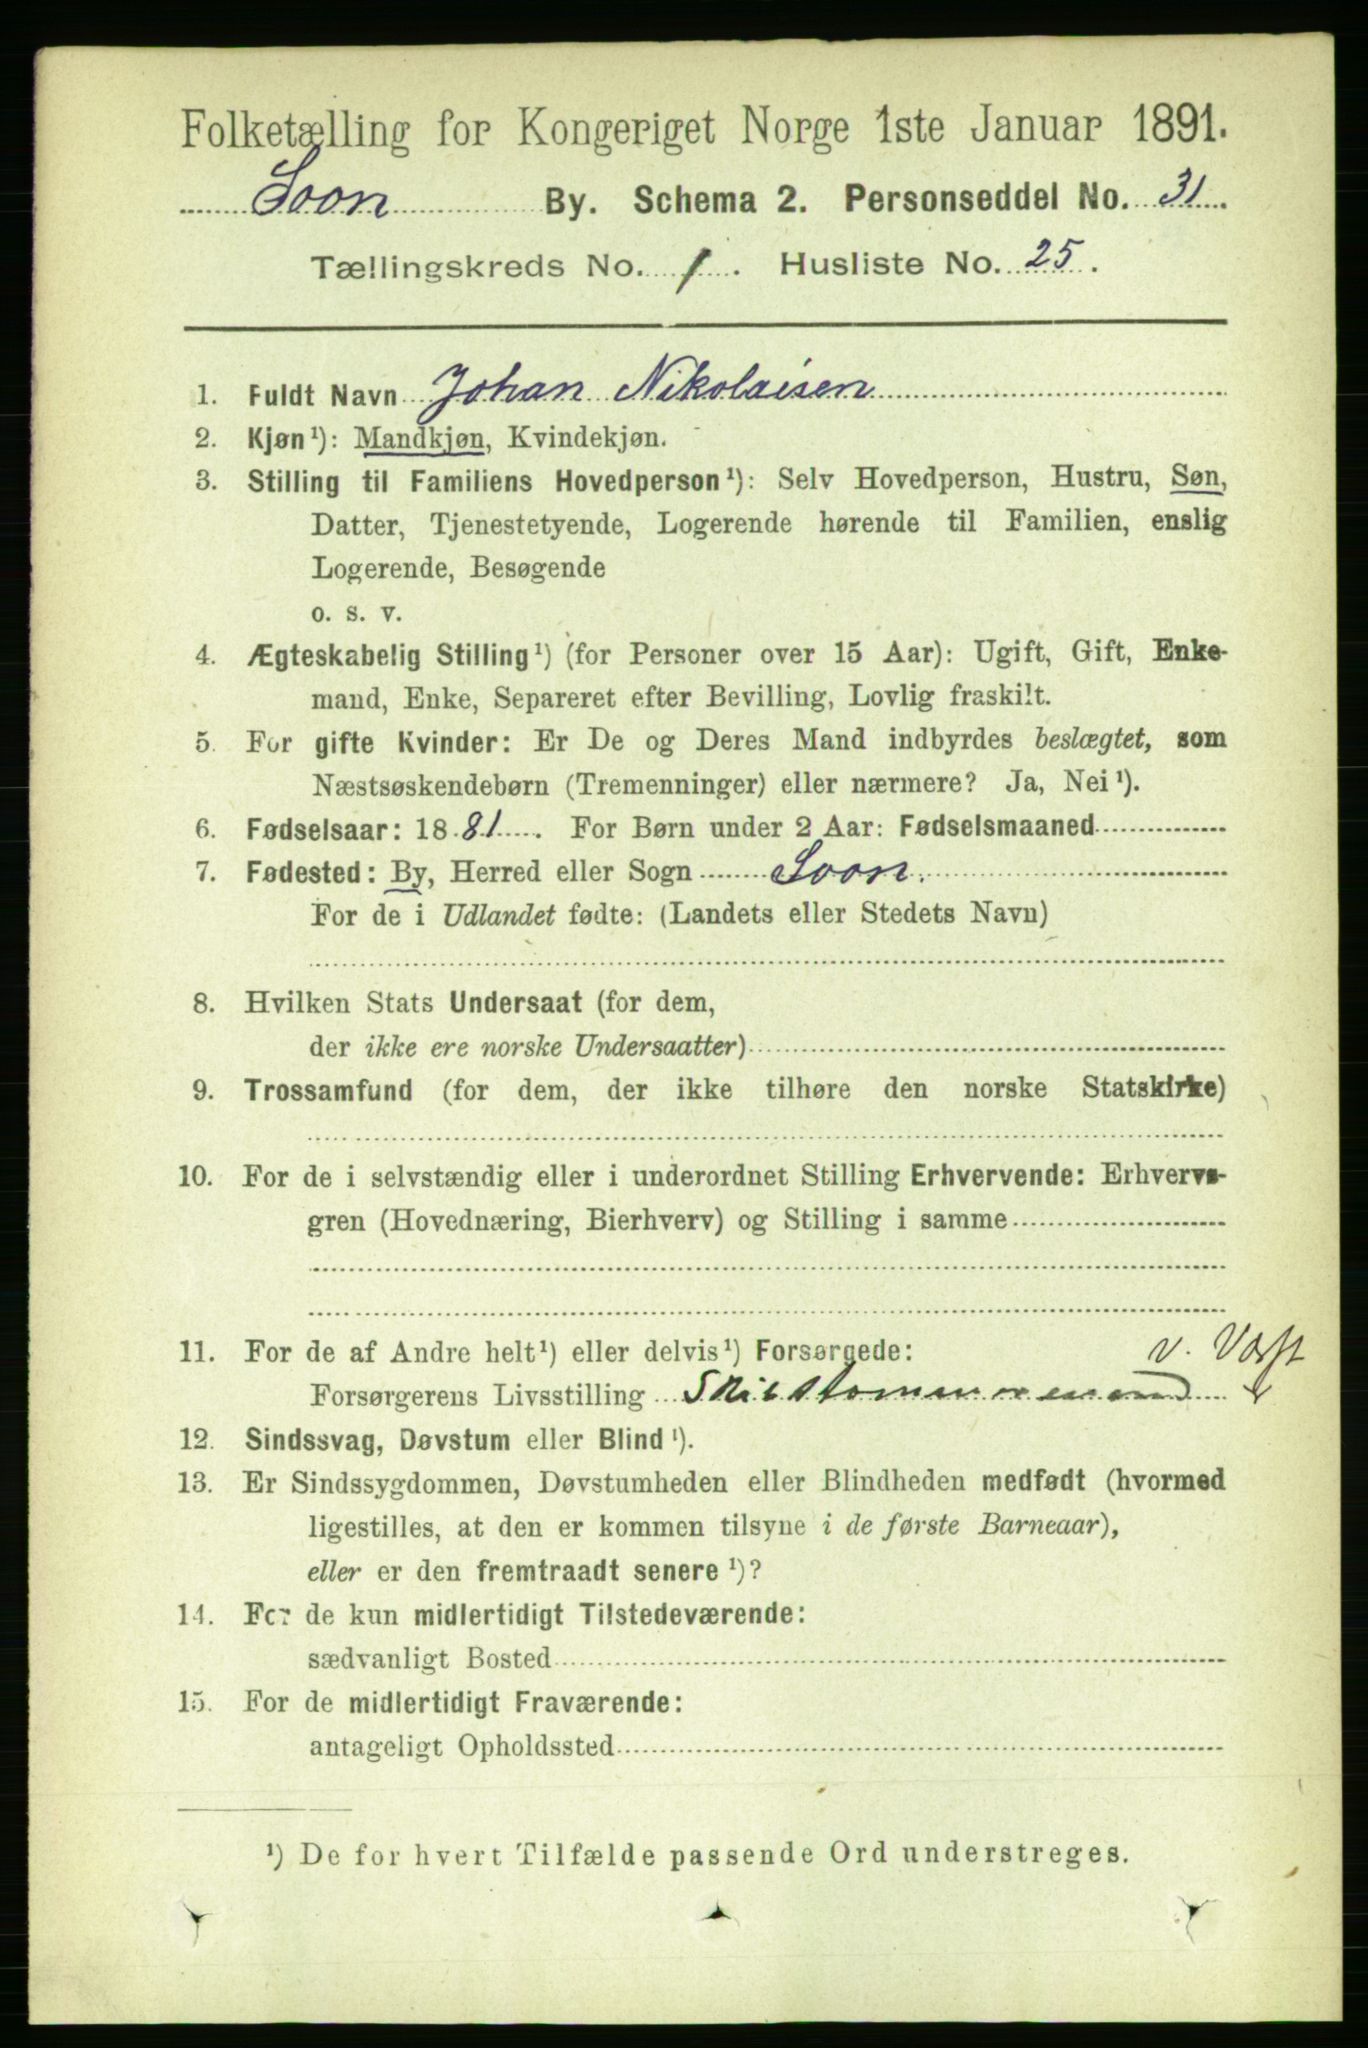 Folketælling for Kongeriget Norge 1ste Januar 1891.
Soon By. Schema 2. Personseddel No. 31.
Tællingskreds No. 1. Husliste No. 25.
1. Fuldt Navn Johan Nikolaisen
2. Kjøn¹): Mandkjøn, Kvindekjøn.
3. Stilling til Familiens Hovedperson¹): Selv Hovedperson, Hustru, Søn,
Datter, Tjenestetyende, Logerende hørende til Familien, enslig
Logerende, Besøgende
o. s. v.
4. Ægteskabelig Stilling¹) (for Personer over 15 Aar): Ugift, Gift, Enke-
mand, Enke, Separeret efter Bevilling, Lovlig fraskilt.
5. For gifte Kvinder: Er De og Deres Mand indbyrdes beslægtet, som
Næstsøskendebørn (Tremenninger) eller nærmere? Ja, Nei¹).
6. Fødselsaar: 1881. For Børn under 2 Aar: Fødselsmaaned
7. Fødested: By, Herred eller Sogn Soon.
For de i Udlandet fødte: (Landets eller Stedets Navn)
8. Hvilken Stats Undersaat (for dem,
der ikke ere norske Undersaatter)
9. Trossamfund (for dem, der ikke tilhøre den norske Statskirke)
10. For de i selvstændig eller i underordnet Stilling Erhvervende: Erhvervs-
gren (Hovednæring, Bierhverv) og Stilling i samme
11. For de af Andre helt¹) eller delvis¹) Forsørgede: v. Værft
Forsørgerens Livsstilling Skibstømmermand
12. Sindssvag, Døvstum eller Blind¹).
13. Er Sindssygdommen, Døvstumheden eller Blindheden medfødt (hvormed
ligestilles, at den er kommen tilsyne i de første Barneaar),
eller er den fremtraadt senere¹)?
14. For de kun midlertidigt Tilstedeværende:
sædvanligt Bosted
15. For de midlertidigt Fraværende:
antageligt Opholdssted
¹) De for hvert Tilfælde passende Ord understreges.